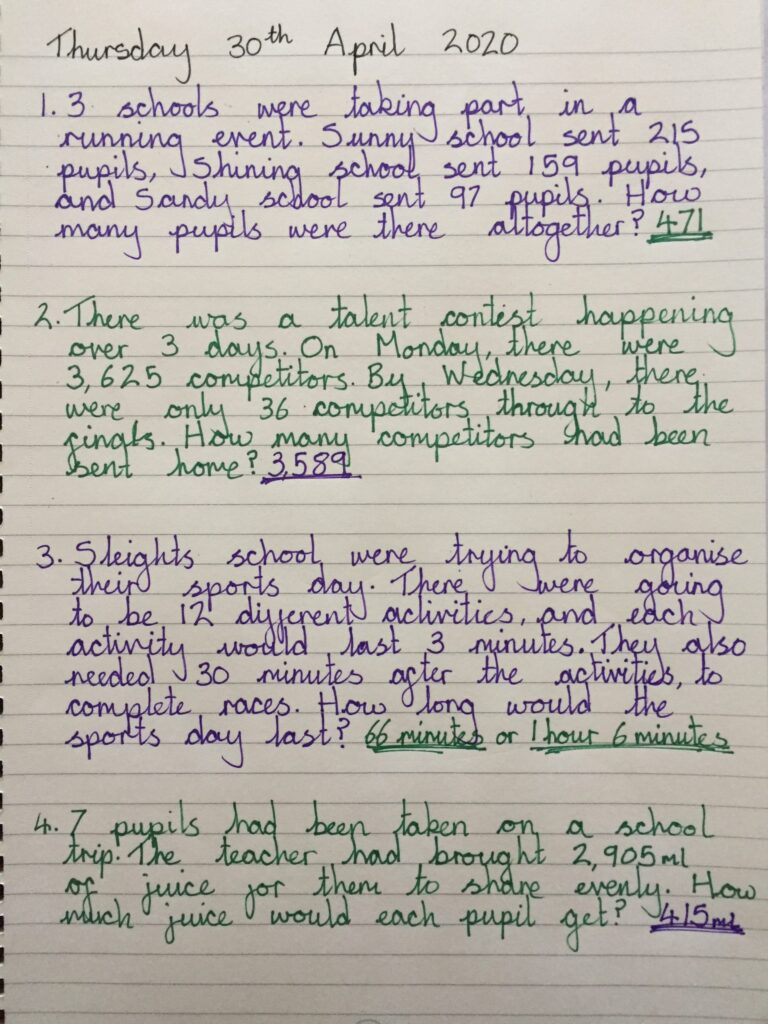 Thursday 30th April 2020
1. 3 schools were taking part in a
running event. Sunny school sent 215
pupils, Shining school sent 159 pupils,
and Sandy school sent 97 pupils. How
many pupils were there altogether? 471
2. There was a talent contest happening
over 3 days. On Monday, there were
3,625 competitors. By Wednesday, there
were only 36 competitors through to the
finals. How many competitors had been
sent home? 3,589
3. Sleights school were trying to organise
their sports day. There were going
to be 12 different activities, and each
activity would last 3 minutes. They also
needed 30 minutes after the activities, to
complete races. How long would the
sports day last? 66 minutes or 1 hour 6 minutes
4. 7 pupils had been taken on a school
trip. The teacher had brought 2,905ml
of juice for them to share evenly. How
much juice would each pupil get? 415ml